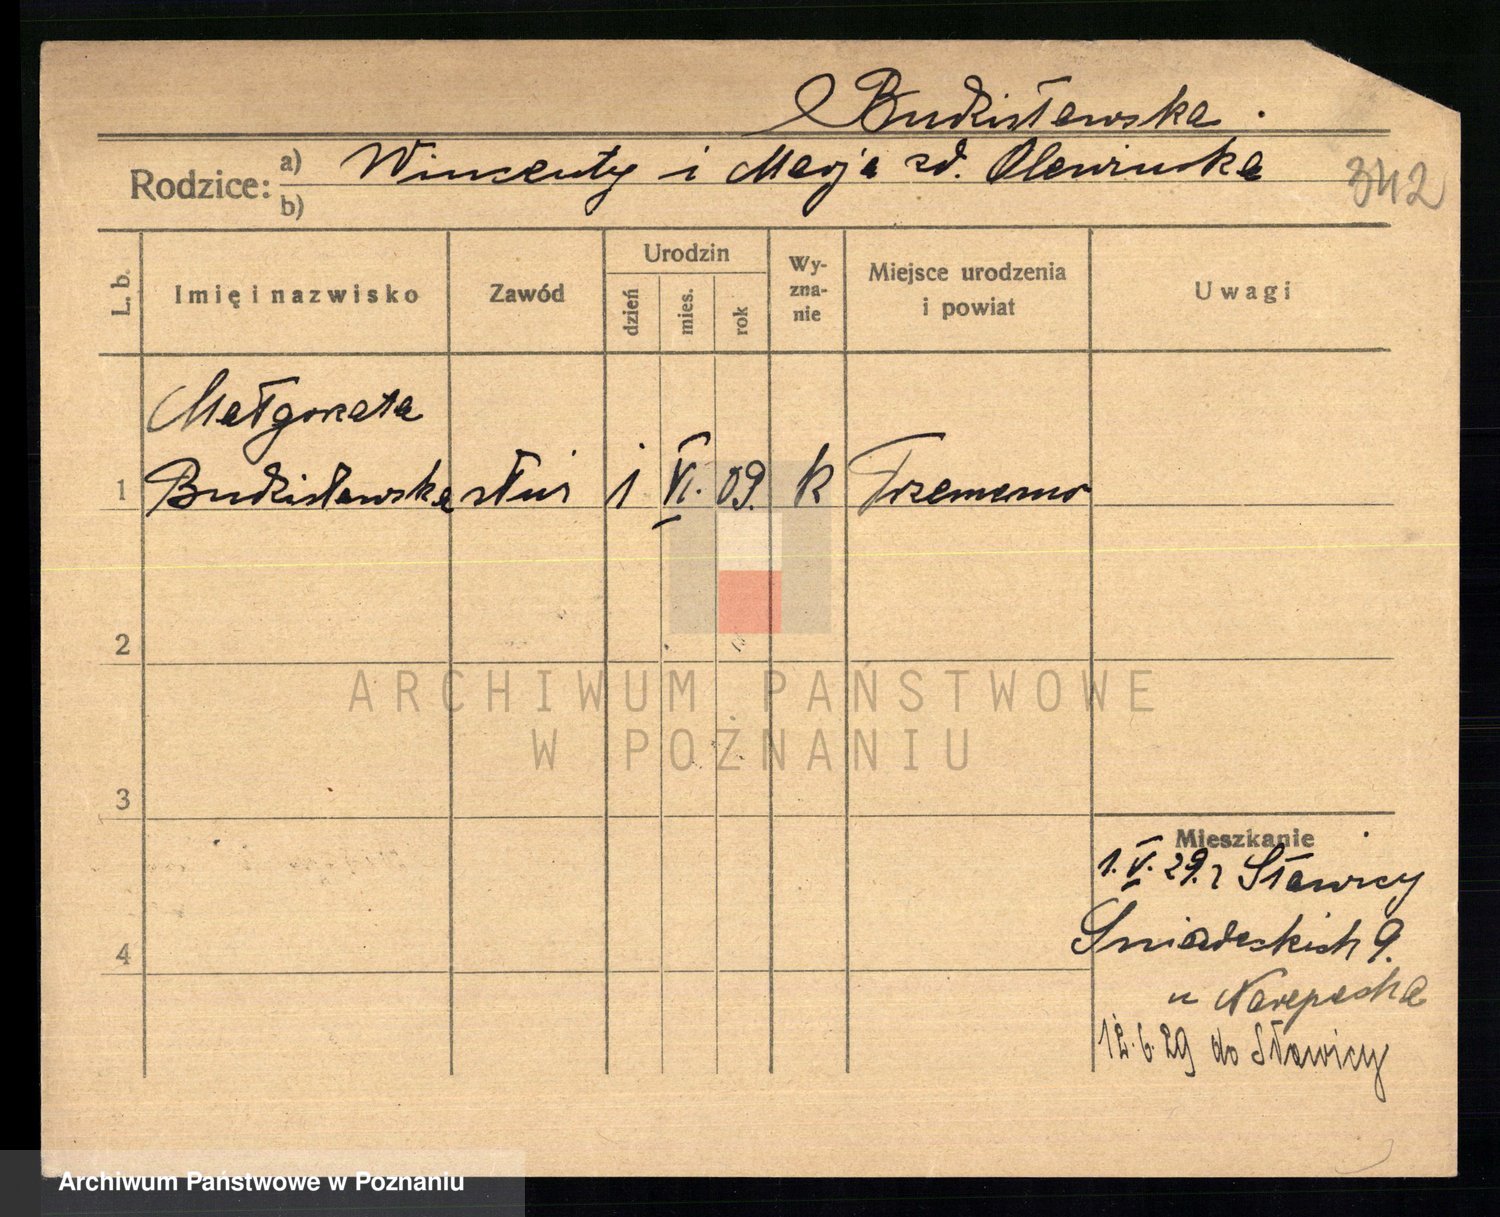 Budzisławska.
Rodzice: a) Wincenty i Marja zd. Olewińska
b)
342
L. b. Imię i nazwisko Zawód Urodzin dzień mies. rok Wyznanie Miejsce urodzenia i powiat Uwagi
Małgorzata
1 Budzisławska służ 1 VI. 09. k Trzemeszno
2
3
4
Mieszkanie
1. V. 29. z Sławicy
Śniadeckich 9.
u
12. 6. 29 do Sławicy
ARCHIWUM PAŃSTWOWE
W POZNANIU
Archiwum Państwowe w Poznaniu